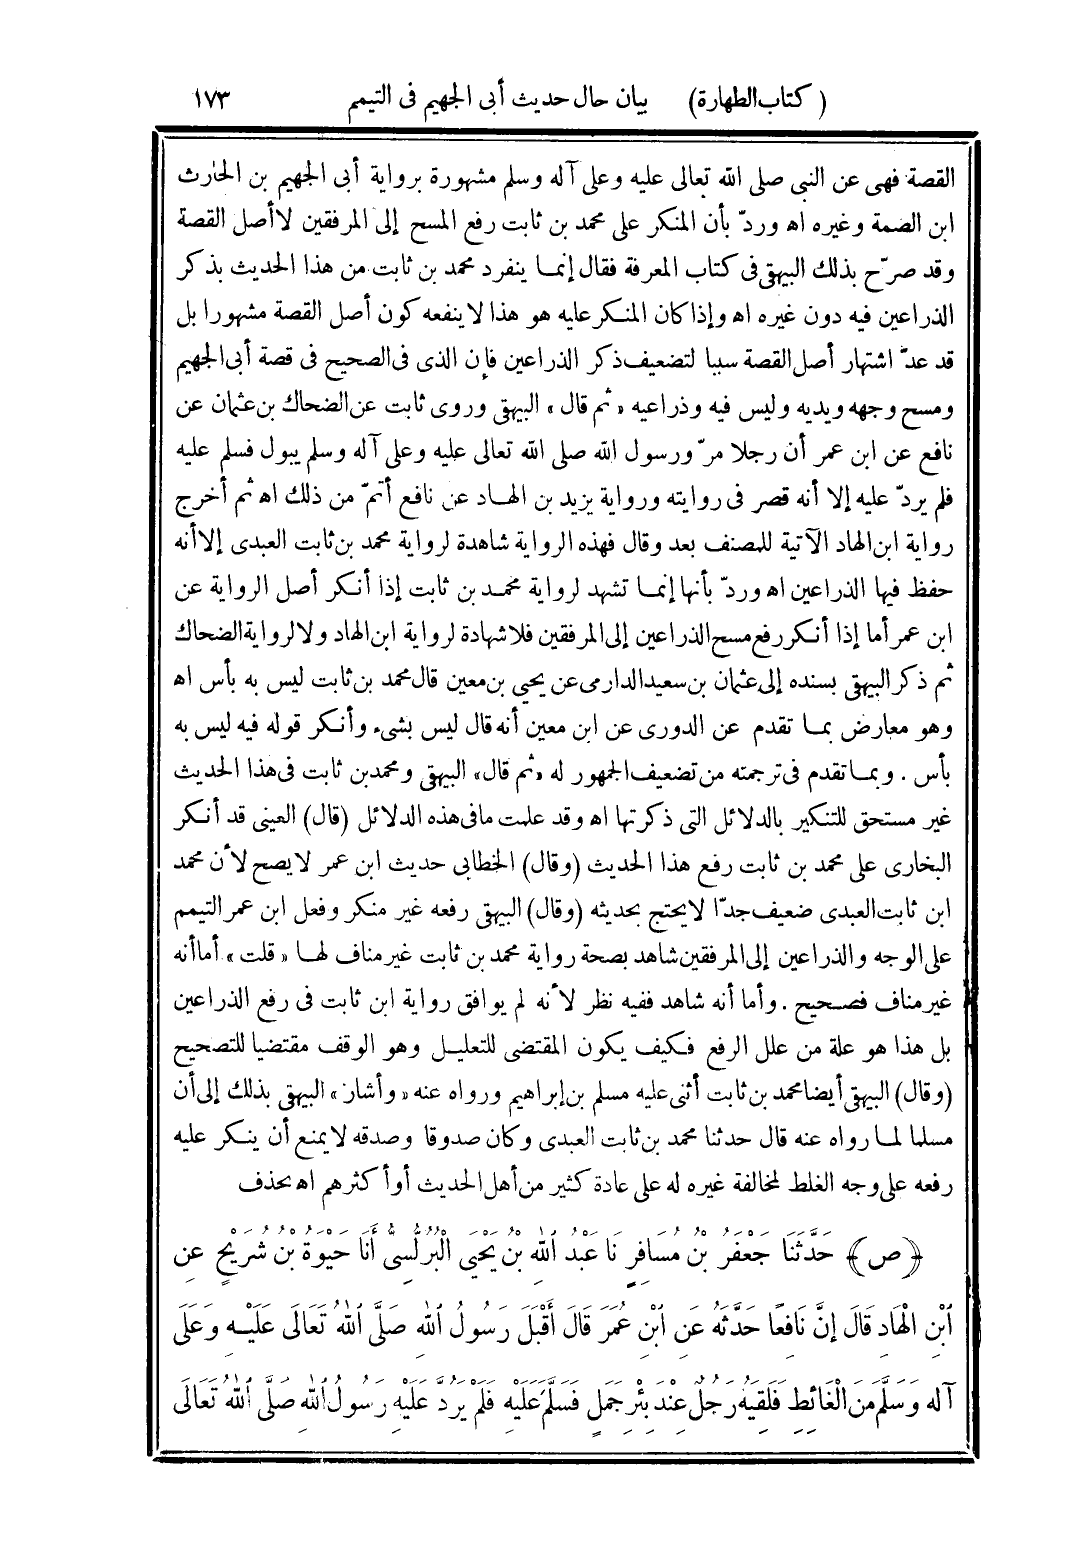 (كتاب الطهارة) بيان حال حديث أبى الجهيم فى التيمم ١٧٣
القصة فهى عن النبى صلى الله تعالى عليه وعلى آله وسلم مشهورة برواية أبى الجهيم بن الحارث
ابن الصمة وغيره اه وردّ بأن المنكر على محمد بن ثابت رفع المسح إلى المرفقين لا أصل القصة
وقد صرّح بذلك البيهقى فى كتاب المعرفة فقال إنما ينفرد محمد بن ثابت من هذا الحديث بذكر
الذراعين فيه دون غيره اه وإذا كان المنكر عليه هو هذا لا ينفعه كون أصل القصة مشهورا بل
قد عدّ اشتهار أصل القصة سببا لتضعيف ذكر الذراعين فإن الذى فى الصحيح فى قصة أبى الجهيم
ومسح وجهه ويديه وليس فيه وذراعيه «ثم قال» البيهقى وروى ثابت عن الضحاك بن عثمان عن
نافع عن ابن عمر أن رجلا مرّ ورسول الله صلى الله تعالى عليه وعلى آله وسلم يبول فسلم عليه
فلم يردّ عليه إلا أنه قصر فى روايته ورواية يزيد بن الهاد عن نافع أتمّ من ذلك اه ثم أخرج
رواية ابن الهاد الآتية للمصنف بعد وقال فهذه الرواية شاهدة لرواية محمد بن ثابت العبدى إلا أنه
حفظ فيها الذراعين اه وردّ بأنها إنما تشهد لرواية محمد بن ثابت إذا أنكر أصل الرواية عن
ابن عمر أما إذا أنكر رفع مسح الذراعين إلى المرفقين فلا شهادة لرواية ابن الهاد ولا لرواية الضحاك
ثم ذكر البيهقى بسنده إلى عثمان بن سعيد الدارمى عن يحيى بن معين قال محمد بن ثابت ليس به بأس اه
وهو معارض بما تقدم عن الدورى عن ابن معين أنه قال ليس بشىء وأنكر قوله فيه ليس به
بأس . وبما تقدم فى ترجمته من تضعيف الجمهور له «ثم قال» البيهقى ومحمد بن ثابت فى هذا الحديث
غير مستحق للتنكير بالدلائل التى ذكرتها اه وقد علمت ما فى هذه الدلائل (قال) العينى قد أنكر
البخارى على محمد بن ثابت رفع هذا الحديث (وقال) الخطابى حديث ابن عمر لا يصح لأن محمد
ابن ثابت العبدى ضعيف جدّا لا يحتج بحديثه (وقال) البيهقى رفعه غير منكر وفعل ابن عمر التيمم
على الوجه والذراعين إلى المرفقين شاهد بصحة رواية محمد بن ثابت غير مناف لها «قلت» أما أنه
غير مناف فصحيح . وأما أنه شاهد ففيه نظر لأنه لم يوافق رواية ابن ثابت فى رفع الذراعين
بل هذا هو علة من علل الرفع فكيف يكون المقتضى للتعليل وهو الوقف مقتضيا للتصحيح
(وقال) البيهقى أيضا محمد بن ثابت أثنى عليه مسلم بن إبراهيم ورواه عنه «وأشار» البيهقى بذلك إلى أن
مسلما لما رواه عنه قال حدثنا محمد بن ثابت العبدى وكان صدوقا وصدقه لا يمنع أن ينكر عليه
رفعه على وجه الغلط لمخالفة غيره له على عادة كثير من أهل الحديث أو أكثرهم اه بحذف
﴿ص﴾ حَدَّثَنَا جَعْفَرُ بْنُ مُسَافِرٍ نَا عَبْدُ اللهِ بْنُ يَحْيَى الْبُرُلُّسِىُّ أَنَا حَيْوَةُ بْنُ شُرَيْحٍ عَنِ
ابْنِ الْهَادِ قَالَ إِنَّ نَافِعًا حَدَّثَهُ عَنِ ابْنِ عُمَرَ قَالَ أَقْبَلَ رَسُولُ اللهِ صَلَّى اللهُ تَعَالَى عَلَيْهِ وَعَلَى
آلِهِ وَسَلَّمَ مِنَ الْغَائِطِ فَلَقِيَهُ رَجُلٌ عِنْدَ بِئْرِ جَمَلٍ فَسَلَّمَ عَلَيْهِ فَلَمْ يَرُدَّ عَلَيْهِ رَسُولُ اللهِ صَلَّى اللهُ تَعَالَى